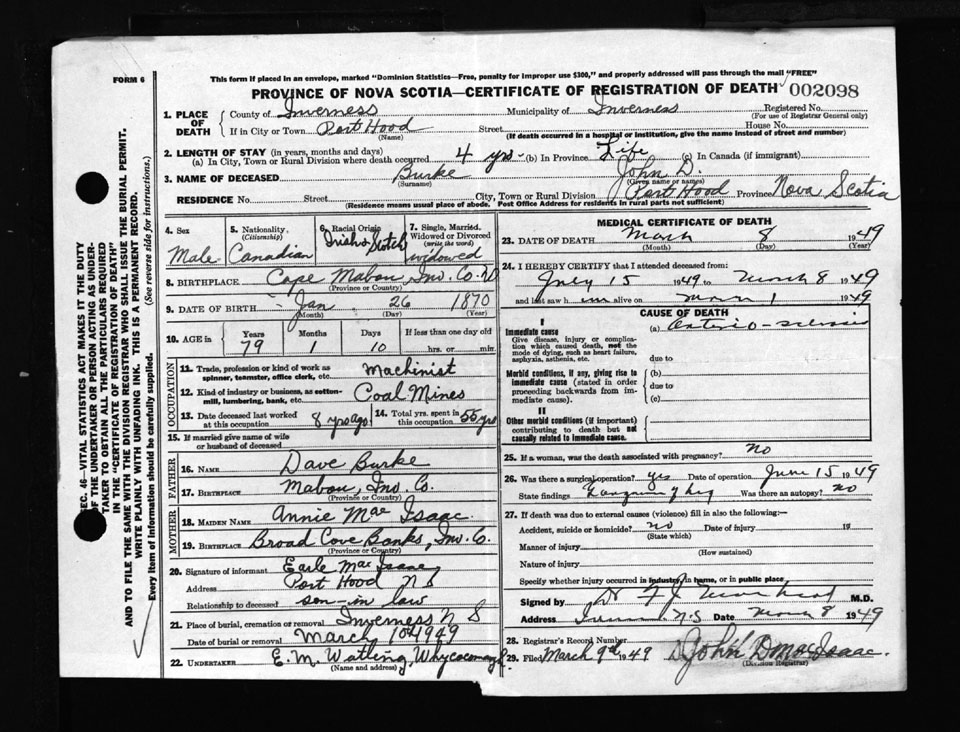 FORM 6
This form if placed in an envelope, marked "Dominion Statistics—Free, penalty for improper use $300," and properly addressed will pass through the mail "FREE"
PROVINCE OF NOVA SCOTIA—CERTIFICATE OF REGISTRATION OF DEATH 002098
1. PLACE OF DEATH
County of Inverness Municipality of Inverness Registered No.
(For use of Registrar General only)
If in City or Town Port Hood Street House No.
(Name) (If death occurred in a hospital or institution, give the name instead of street and number)
2. LENGTH OF STAY (in years, months and days)
(a) In City, Town or Rural Division where death occurred 4 yrs (b) In Province Life (c) In Canada (if immigrant)
3. NAME OF DECEASED Burke John D.
(Surname) (Given name or names)
RESIDENCE No. Street City, Town or Rural Division Port Hood Province Nova Scotia
(Residence means usual place of abode. Post Office Address for residents in rural parts not sufficient)
4. Sex Male
5. Nationality (Citizenship) Canadian
6. Racial Origin Irish & Scotch
7. Single, Married, Widowed or Divorced (write the word) widowed
8. BIRTHPLACE Cape Mabou, Inv. Co.
(Province or Country)
9. DATE OF BIRTH Jan 26 1870
(Month) (Day) (Year)
10. AGE in Years Months Days If less than one day old
79 1 10 hrs. or min.
OCCUPATION
11. Trade, profession or kind of work as spinner, teamster, office clerk, etc. Machinist
12. Kind of industry or business, as cotton-mill, lumbering, bank, etc. Coal Mines
13. Date deceased last worked at this occupation 8 yrs ago
14. Total yrs. spent in this occupation 55 yrs
15. If married give name of wife or husband of deceased
FATHER
16. NAME Dave Burke
17. BIRTHPLACE Mabou, Inv. Co.
(Province or Country)
MOTHER
18. MAIDEN NAME Annie Mac Isaac
19. BIRTHPLACE Broad Cove Banks, Inv. Co.
(Province or Country)
20. Signature of informant Earle Mac Isaac
Address Port Hood N S
Relationship to deceased son-in law
21. Place of burial, cremation or removal Inverness N S
Date of burial or removal March 10 1949
22. UNDERTAKER E. M. Watling, Whycocomagh
(Name and address)
MEDICAL CERTIFICATE OF DEATH
23. DATE OF DEATH March 8 1949
(Month) (Day) (Year)
24. I HEREBY CERTIFY that I attended deceased from:
July 15 1949 to March 8 1949
and last saw him alive on March 1 1949
CAUSE OF DEATH
I
Immediate cause (a)
Give disease, injury or complication which caused death, not the mode of dying, such as heart failure, asphyxia, asthenia, etc.
due to
Morbid conditions, if any, giving rise to immediate cause (stated in order proceeding backwards from immediate cause).
(b)
due to
(c)
II
Other morbid conditions (if important) contributing to death but not causally related to immediate cause.
25. If a woman, was the death associated with pregnancy? No
26. Was there a surgical operation? yes Date of operation June 15 1949
State findings Was there an autopsy? No
27. If death was due to external causes (violence) fill in also the following:—
Accident, suicide or homicide? no Date of injury 19
(State which)
Manner of injury
(How sustained)
Nature of injury
Specify whether injury occurred in industry, in home, or in public place
Signed by Dr M.D.
Address N.S Date March 8 1949
28. Registrar's Record Number
29. Filed March 9th 1949 John D Mac Isaac
(Division Registrar)
SEC. 46—VITAL STATISTICS ACT MAKES IT THE DUTY
OF THE UNDERTAKER OR PERSON ACTING AS UNDER-
TAKER TO OBTAIN ALL THE PARTICULARS REQUIRED
IN THE "CERTIFICATE OF REGISTRATION OF DEATH"
AND TO FILE THE SAME WITH THE DIVISION REGISTRAR WHO SHALL ISSUE THE BURIAL PERMIT.
WRITE PLAINLY WITH UNFADING INK. THIS IS A PERMANENT RECORD.
Every item of information should be carefully supplied. (See reverse side for instructions.)